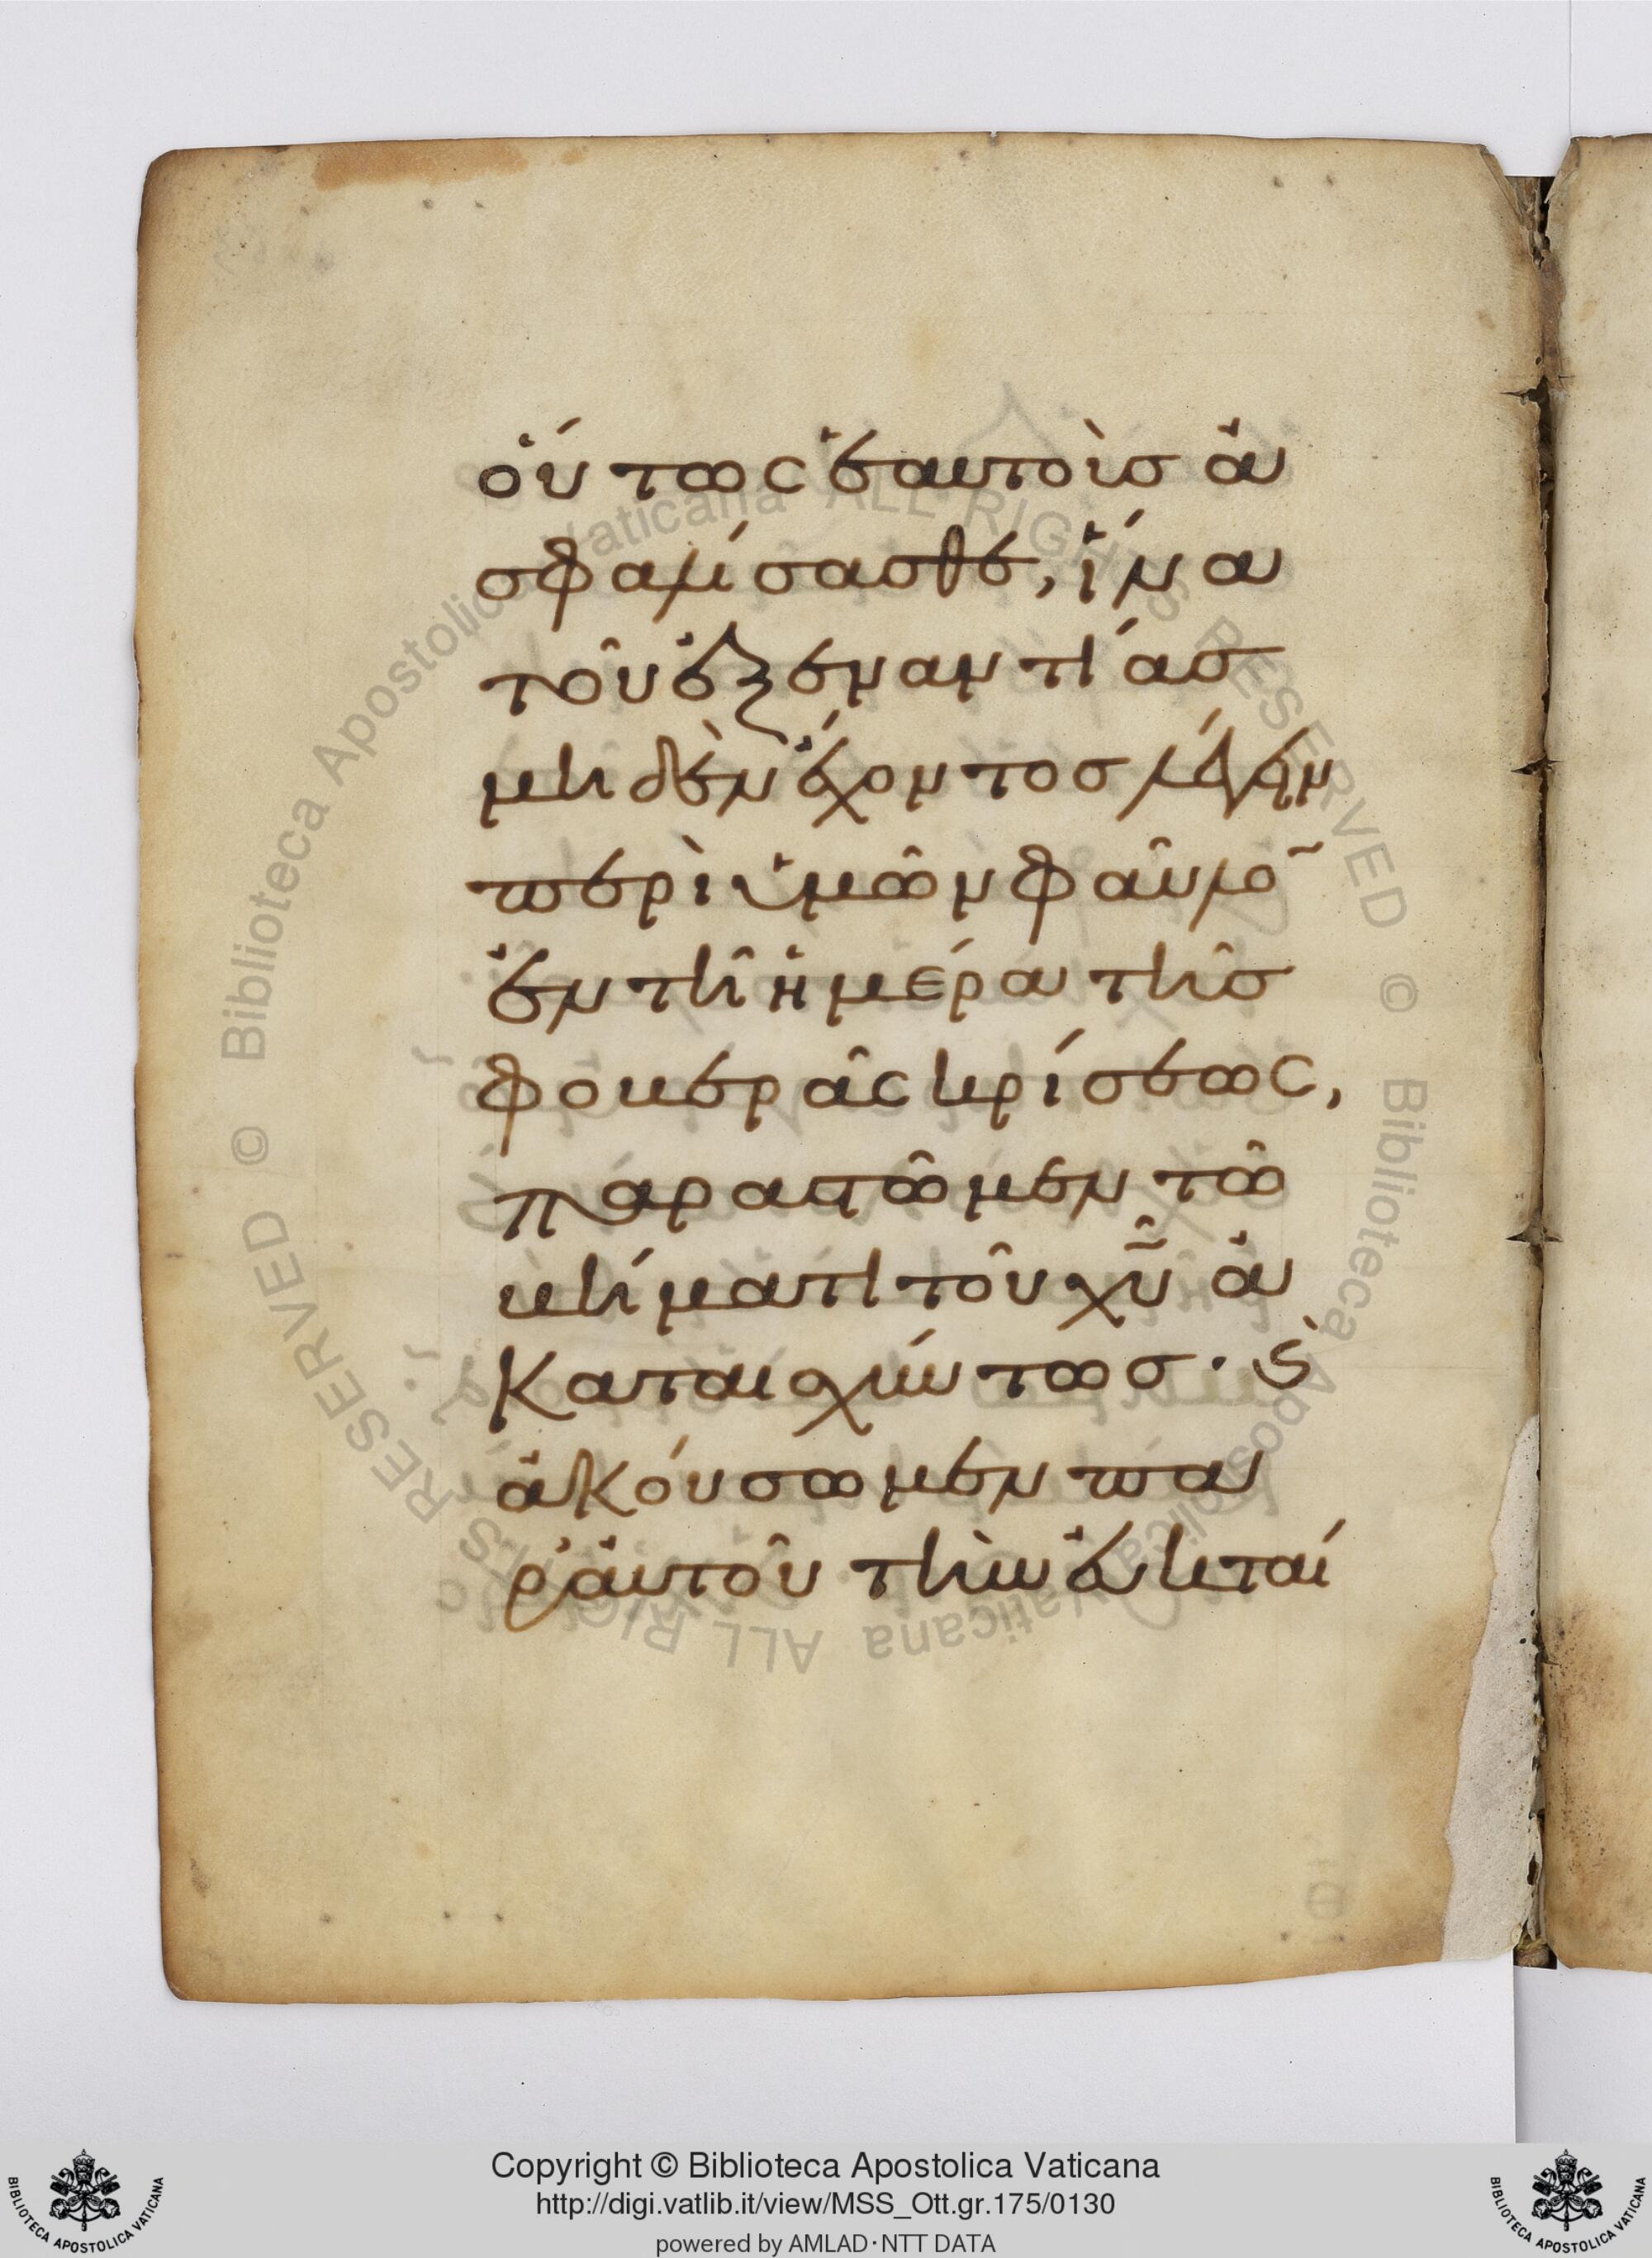 οὕτως ἑαυτοὺσ ἀ
σφαλίσασθε, ἵνα
τοῦ ἐξ ἐναντίασ
μηδὲν ἔχοντοσ λέγειν
περὶ ὑμῶν φαῦλο̃
ἐν τῆ ἡμέρα τῆσ
φοβερᾶς κρίσεως,
παραστῶμεν τῶ
βήματι τοῦ χυ̃ ἀ
καταισχύντωσ· ϗ̀
ἀκούσωμεν πα
ρ' αὐτοῦ τὴν εὐκταί
© Biblioteca Apostolica Vaticana ALL RIGHTS RESERVED © Biblioteca Apostolica Vaticana ALL RIGHTS RESERVED
Copyright © Biblioteca Apostolica Vaticana
http://digi.vatlib.it/view/MSS_Ott.gr.175/0130
powered by AMLAD·NTT DATA
BIBLIOTECA APOSTOLICA VATICANA
BIBLIOTECA APOSTOLICA VATICANA